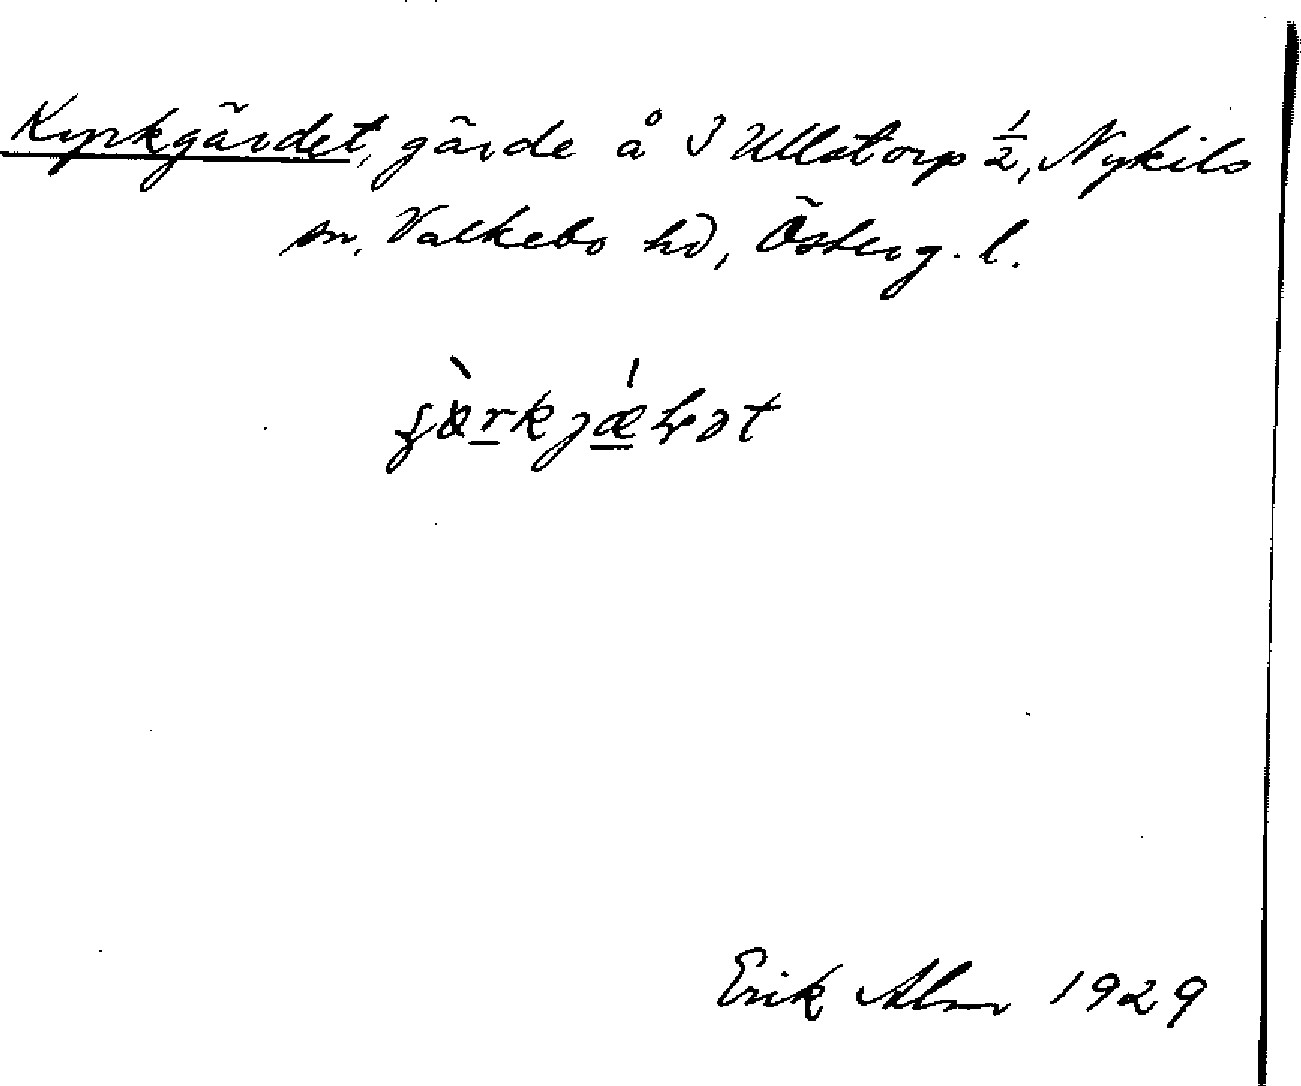 Kyrkgärdet, gärde å I Ullstorp ½, Nykils
sn. Valkebo hd, Österg. l.
Erik Alm 1929